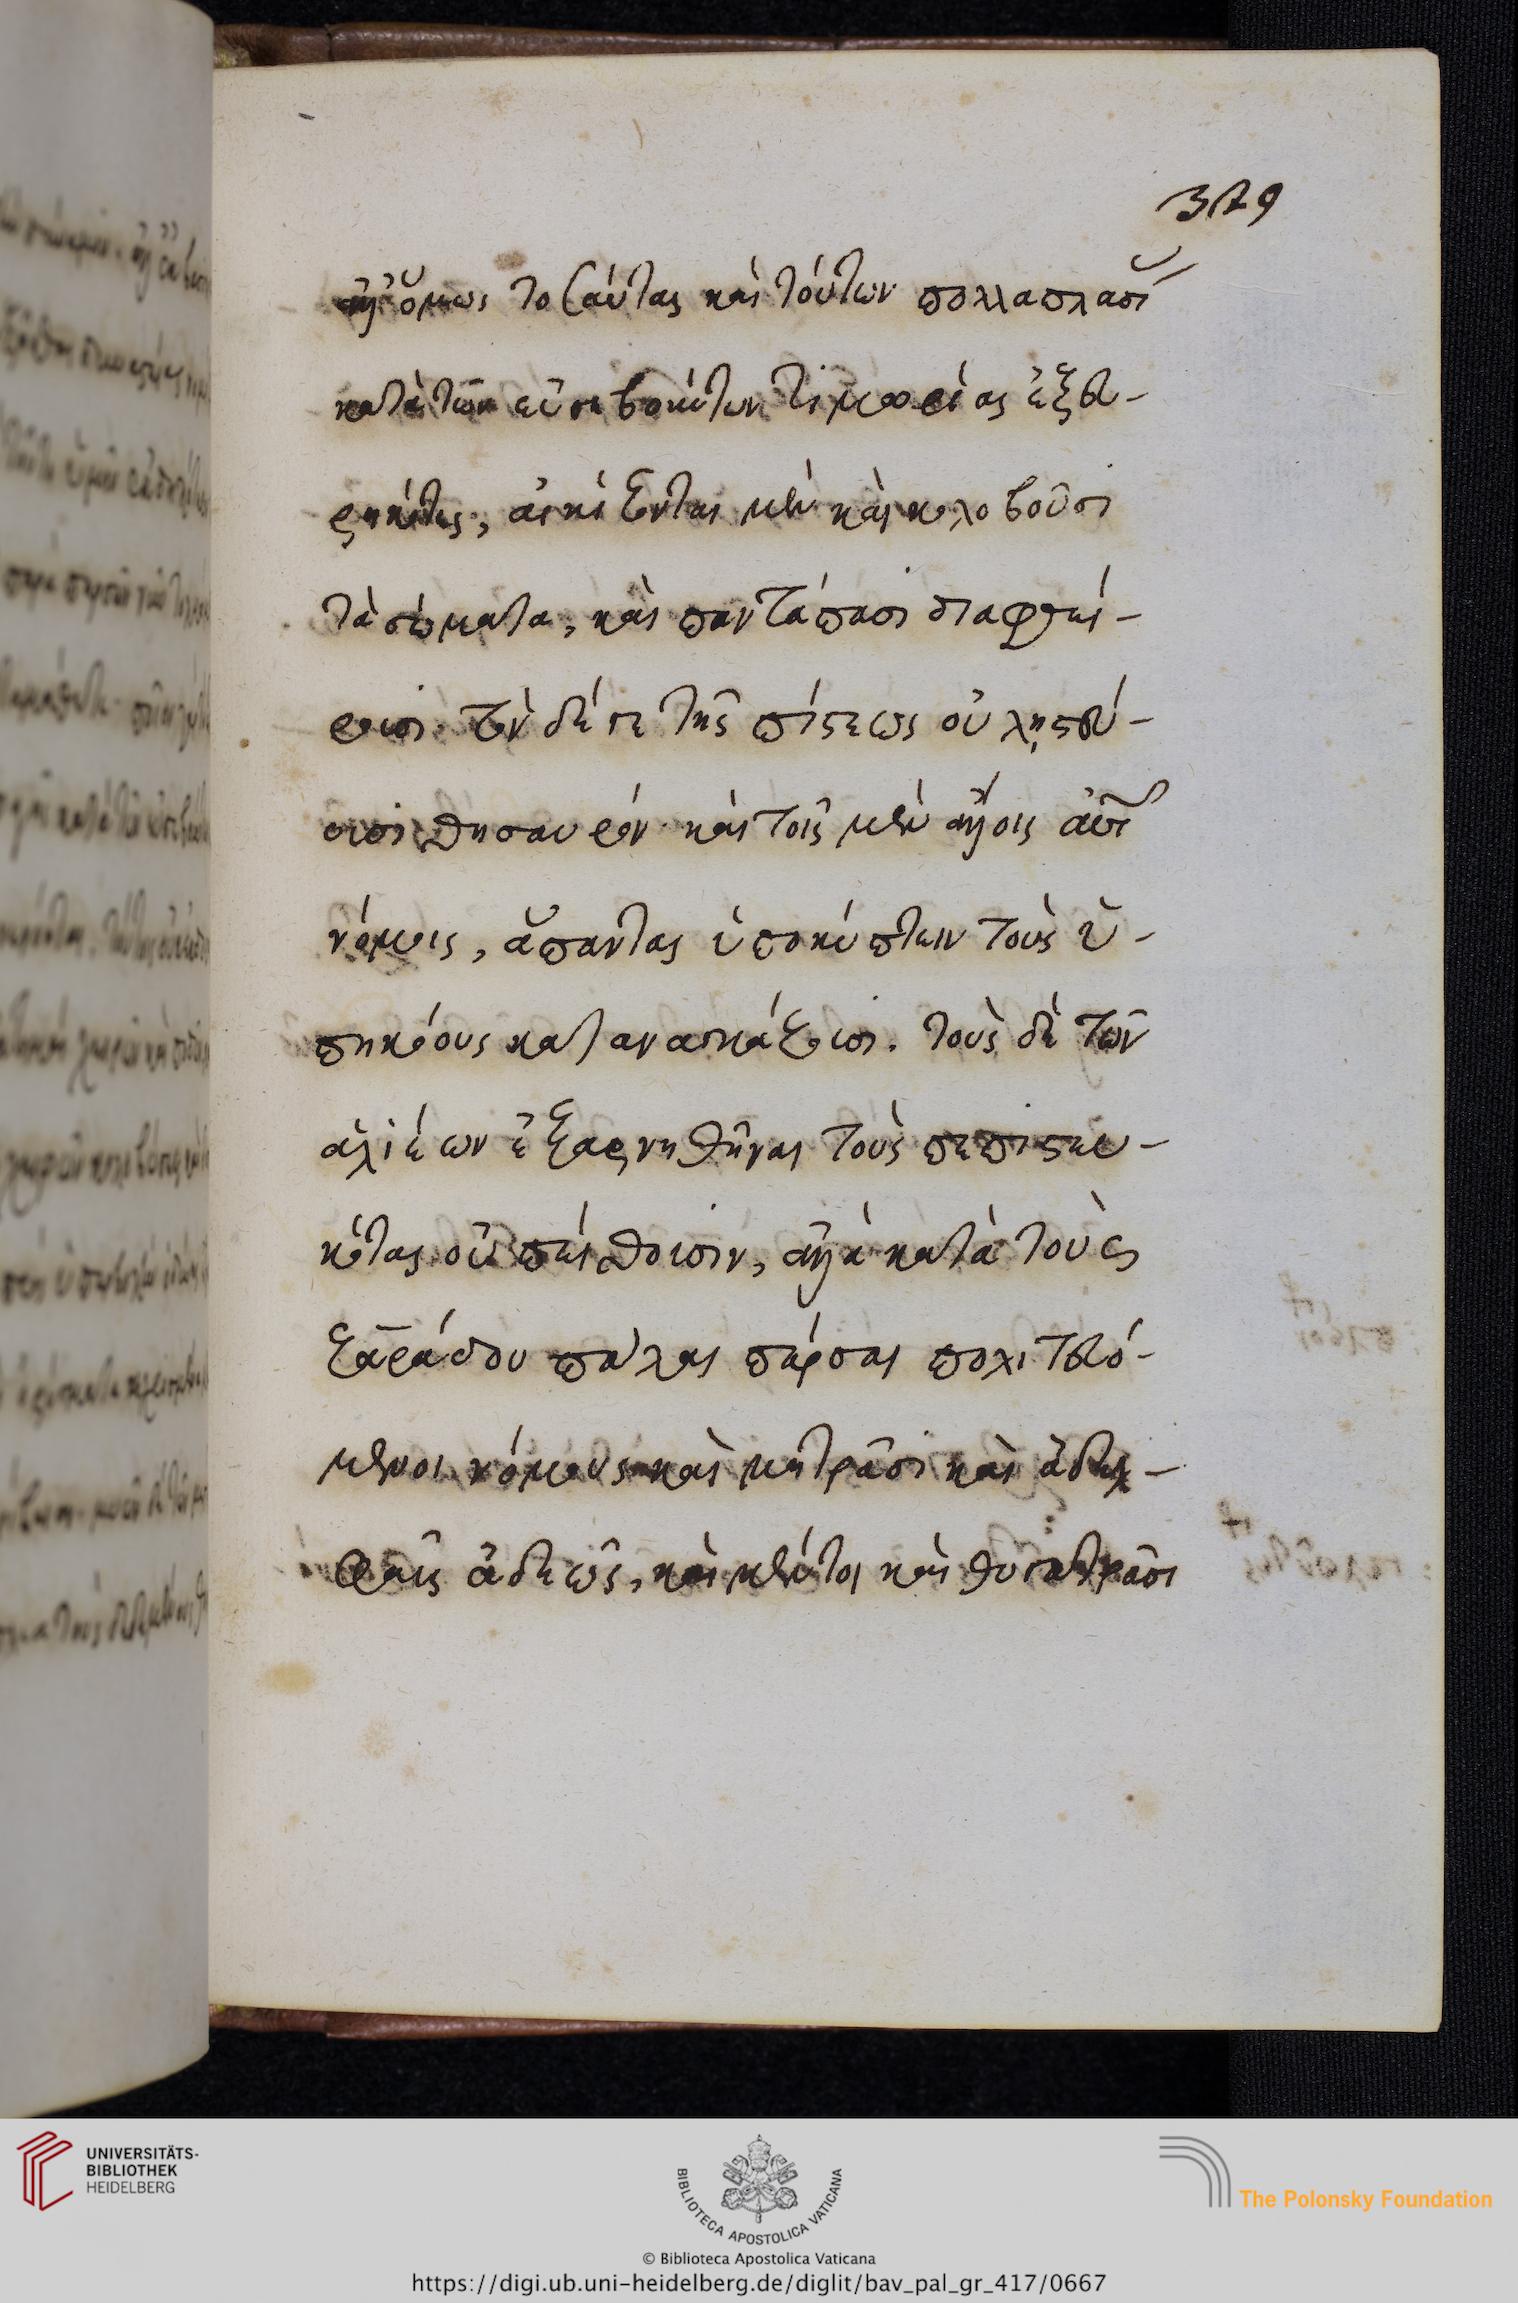 379
ἀλλ' ὅμως τοσαύτας καὶ τούτων πολλαπλασί
κατὰ τῶν εὐσεβούντων τιμωρίας ἐξευ-
ρηκότες, αἰκίζονται μὲν καὶ κολοβοῦσι
τὰ σώματα, καὶ παντάπασι διαφθεί-
ρουσι. τὸν δέ γε τῆς πίστεως οὐ λῃστεύ-
ουσι θησαυρόν· καὶ τοῖς μὲν ἄλλοις αὐτῶν
νόμοις, ἅπαντας ὑποκύπτειν τοὺς ὑ-
πηκόους καταναγκάζουσι. τοὺς δὲ τῶν
ἁλιέων ἐξαρνηθῆναι τοὺς πεπιστευ-
κότας οὐ πείθουσιν, ἀλλὰ κατὰ τοὺς
Ζαράδου πάλαι πέρσαι πολιτευό-
μενοι νόμους καὶ μητράσι καὶ ἀδελ-
φαῖς ἀδεῶς, καὶ μέντοι καὶ θυγατράσι
UNIVERSITÄTS-
BIBLIOTHEK
HEIDELBERG
BIBLIOTECA APOSTOLICA VATICANA
The Polonsky Foundation
© Biblioteca Apostolica Vaticana
https://digi.ub.uni-heidelberg.de/diglit/bav_pal_gr_417/0667